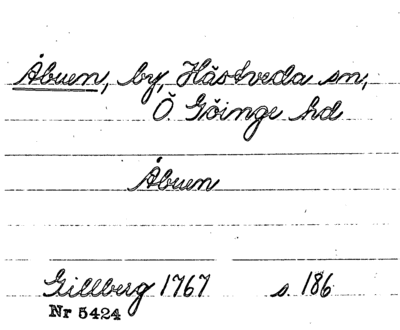 Åbuen, by, Hästveda sn,
Ö. Göinge hd
Åbuen
Gillberg 1767 s. 186
Nr 5424